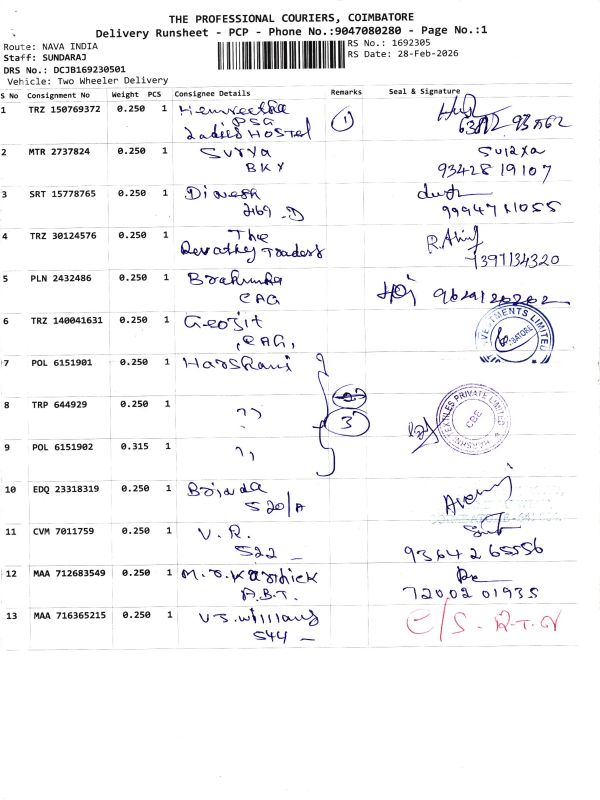 THE PROFESSIONAL COURIERS, COIMBATORE
Delivery Runsheet - PCP - Phone No.:9047080280 - Page No.:1
Route: NAVA INDIA
RS No.: 1692305
Staff: SUNDARAJ
RS Date: 28-Feb-2026
DRS No.: DCJB169230501
Vehicle: Two Wheeler Delivery
S No Consignment No Weight PCS Consignee Details Remarks Seal & Signature
1 TRZ 150769372 0.250 1
PSG
Ladies HOSTEL
1
2 MTR 2737824 0.250 1 Surya
BKY
93428 19107
3 SRT 15778765 0.250 1 Dinesh
4 TRZ 30124576 0.250 1 The
Revathy Traders
7397134320
5 PLN 2432486 0.250 1
CAG
6 TRZ 140041631 0.250 1 Geojit
CAG,
VESTMENTS LIMITED
7 POL 6151901 0.250 1 Harshani
8 TRP 644929 0.250 1 ,,
3
TEXTILES PRIVATE LIMITED
CBE
9 POL 6151902 0.315 1 ,,
10 EDQ 23318319 0.250 1
520/A
11 CVM 7011759 0.250 1 V. R.
522 -
93642 65556
12 MAA 712683549 0.250 1 Karthick
A.B.T.
72002 01935
13 MAA 716365215 0.250 1
544 -
C/S. R.T.O